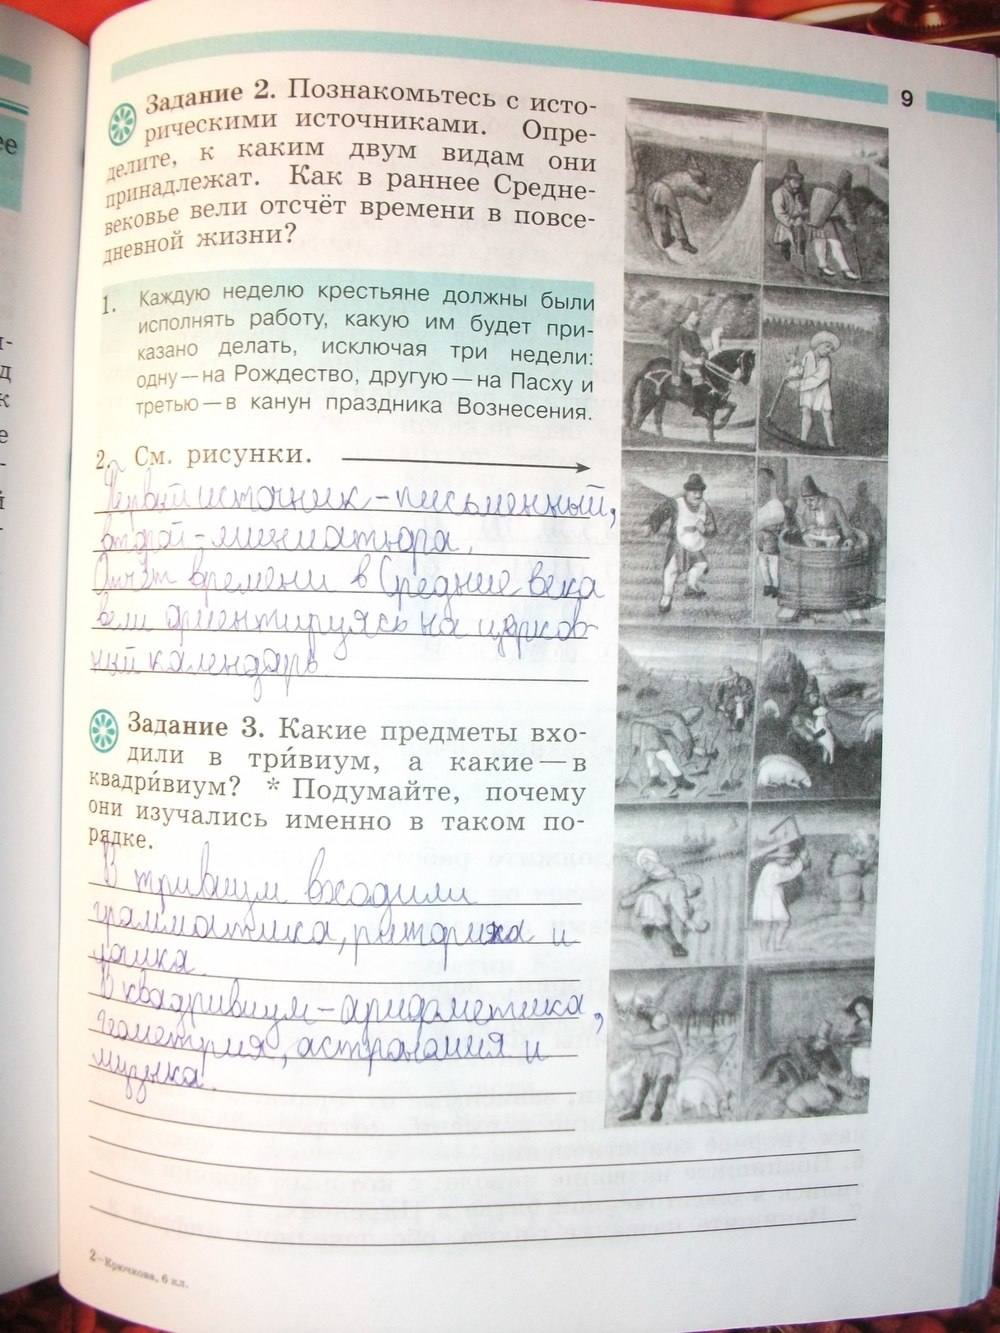 9
Задание 2. Познакомьтесь с исто-
рическими источниками. Опре-
делите, к каким двум видам они
принадлежат. Как в раннее Средне-
вековье вели отсчёт времени в повсе-
дневной жизни?
1. Каждую неделю крестьяне должны были
исполнять работу, какую им будет при-
казано делать, исключая три недели:
одну — на Рождество, другую — на Пасху и
третью — в канун праздника Вознесения.
2. См. рисунки.
Первый источник - письменный,
второй - миниатюра.
Отчёт времени в Средние века
вели ориентируясь на церков-
ный календарь
Задание 3. Какие предметы вхо-
дили в три́виум, а какие — в
квадри́виум? * Подумайте, почему
они изучались именно в таком по-
рядке.
В тривиум входили
грамматика, риторика и
В квадривиум - арифметика,
геометрия, астрономия и
музыка.
2—Крючкова, 6 кл.